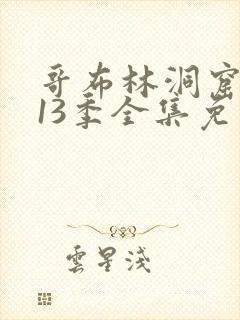 哥布林洞窟
13季全集免
雲星淺